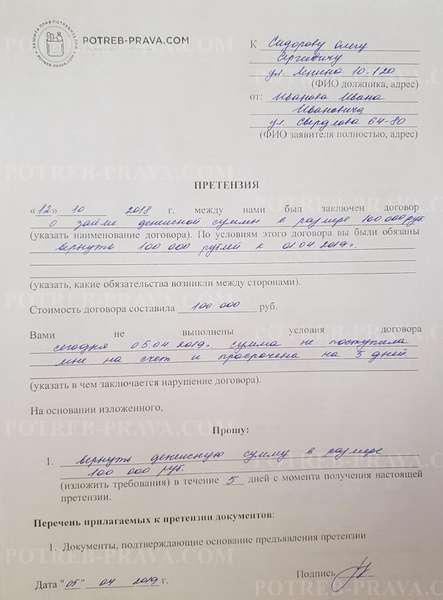 POTREB-PRAVA.COM
К Сидорову Олегу
Сергеевичу
ул. Ленина 10-120
(ФИО должника, адрес)
от: Иванова Ивана
Ивановича
ул. Свердлова 64-80
(ФИО заявителя полностью, адрес)
ПРЕТЕНЗИЯ
«12» 10 2018 г. между нами был заключен договор
о займе денежной суммы в размере 100 000 руб.
(указать наименование договора). По условиям этого договора вы были обязаны
вернуть 100 000 рублей к 01 04 2019г.
(указать, какие обязательства возникли между сторонами).
Стоимость договора составила 100 000 руб.
Вами не выполнены условия договора
сегодня 05.04.2019г. сумма не поступила
мне на счет и просрочена на 5 дней
(указать в чем заключается нарушение договора).
На основании изложенного,
Прошу:
1. вернуть денежную сумму в размере
100 000 руб.
(изложить требования) в течение 5 дней с момента получения настоящей
претензии.
Перечень прилагаемых к претензии документов:
1. Документы, подтверждающие основание предъявления претензии
Дата "05" 04 2019 г. Подпись